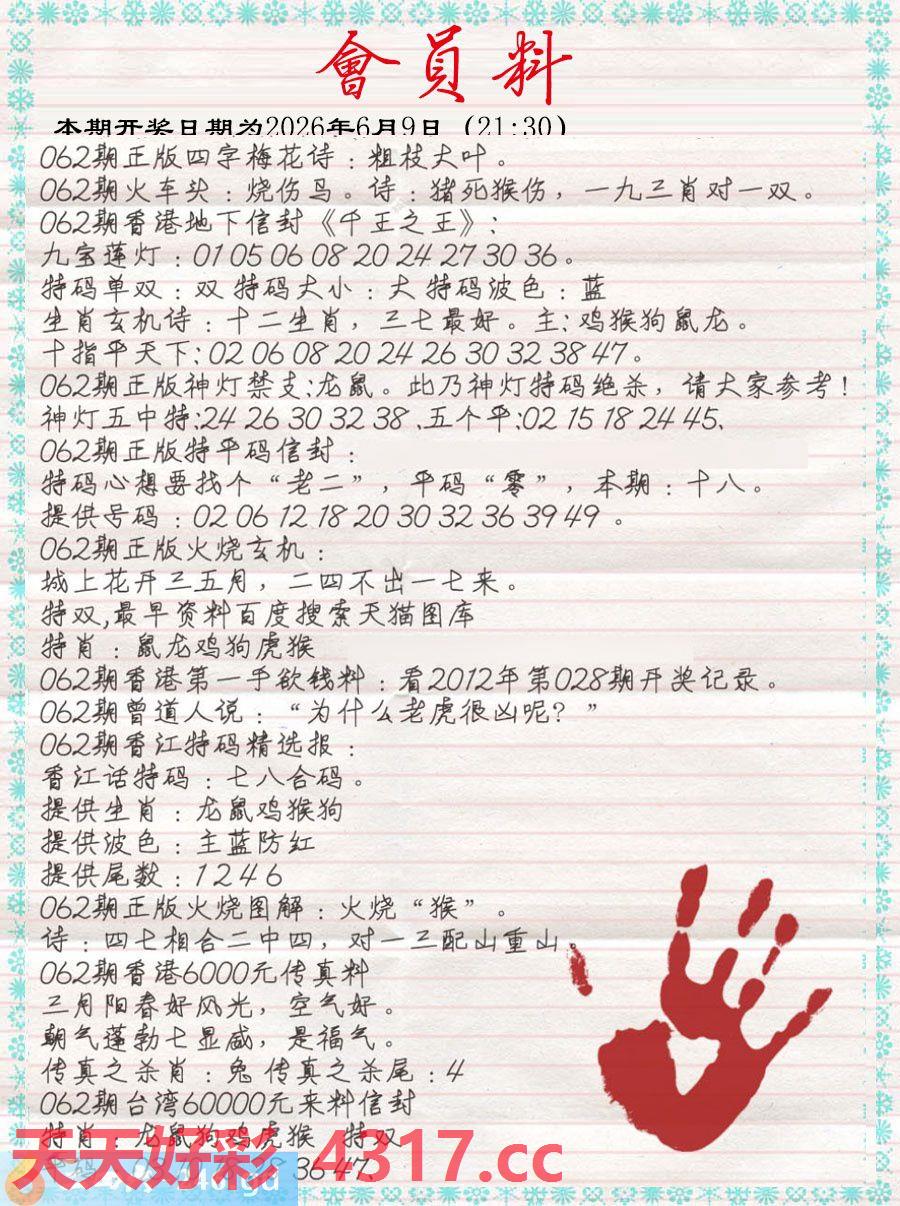 會員料
本期开奖日期为2026年6月9日（21:30）
062期正版四字梅花诗：粗枝大叶。
062期火车头：烧伤鸟。诗：猪死猴伤，一九三肖对一双。
062期香港地下信封《千王之王》：
九宝莲灯：01 05 06 08 20 24 27 30 36。
特码单双：双 特码大小：大 特码波色：蓝
生肖玄机诗：十二生肖，三七最好。主：鸡猴狗鼠龙。
十指平天下：02 06 08 20 24 26 30 32 38 47。
062期正版神灯禁支：龙鼠。此乃神灯特码绝杀，请大家参考！
神灯五中特：24 26 30 32 38 .五个平：02 15 18 24 45、
062期正版特平码信封：
特码心想要找个“老二”，平码“零”，本期：十八。
提供号码：02 06 12 18 20 30 32 36 39 49 。
062期正版火烧玄机：
城上花开三五月，二四不出一七来。
特双,最早资料百度搜索天猫图库
特肖：鼠龙鸡狗虎猴
062期香港第一手欲钱料：看2012年第028期开奖记录。
062期曾道人说：“为什么老虎很凶呢？”
062期香江特码精选报：
香江话特码：七八合码。
提供生肖：龙鼠鸡猴狗
提供波色：主蓝防红
提供尾数：1 2 4 6
062期正版火烧图解：火烧“猴”。
诗：四七相合二中四，对一三配山重山。
062期香港6000元传真料
三月阳春好风光，空气好。
朝气蓬勃七显威，是福气。
传真之杀肖：兔 传真之杀尾：4
062期台湾60000元来料信封
特肖：龙鼠狗鸡虎猴 特双
36 47、
天天好彩 4317.cc